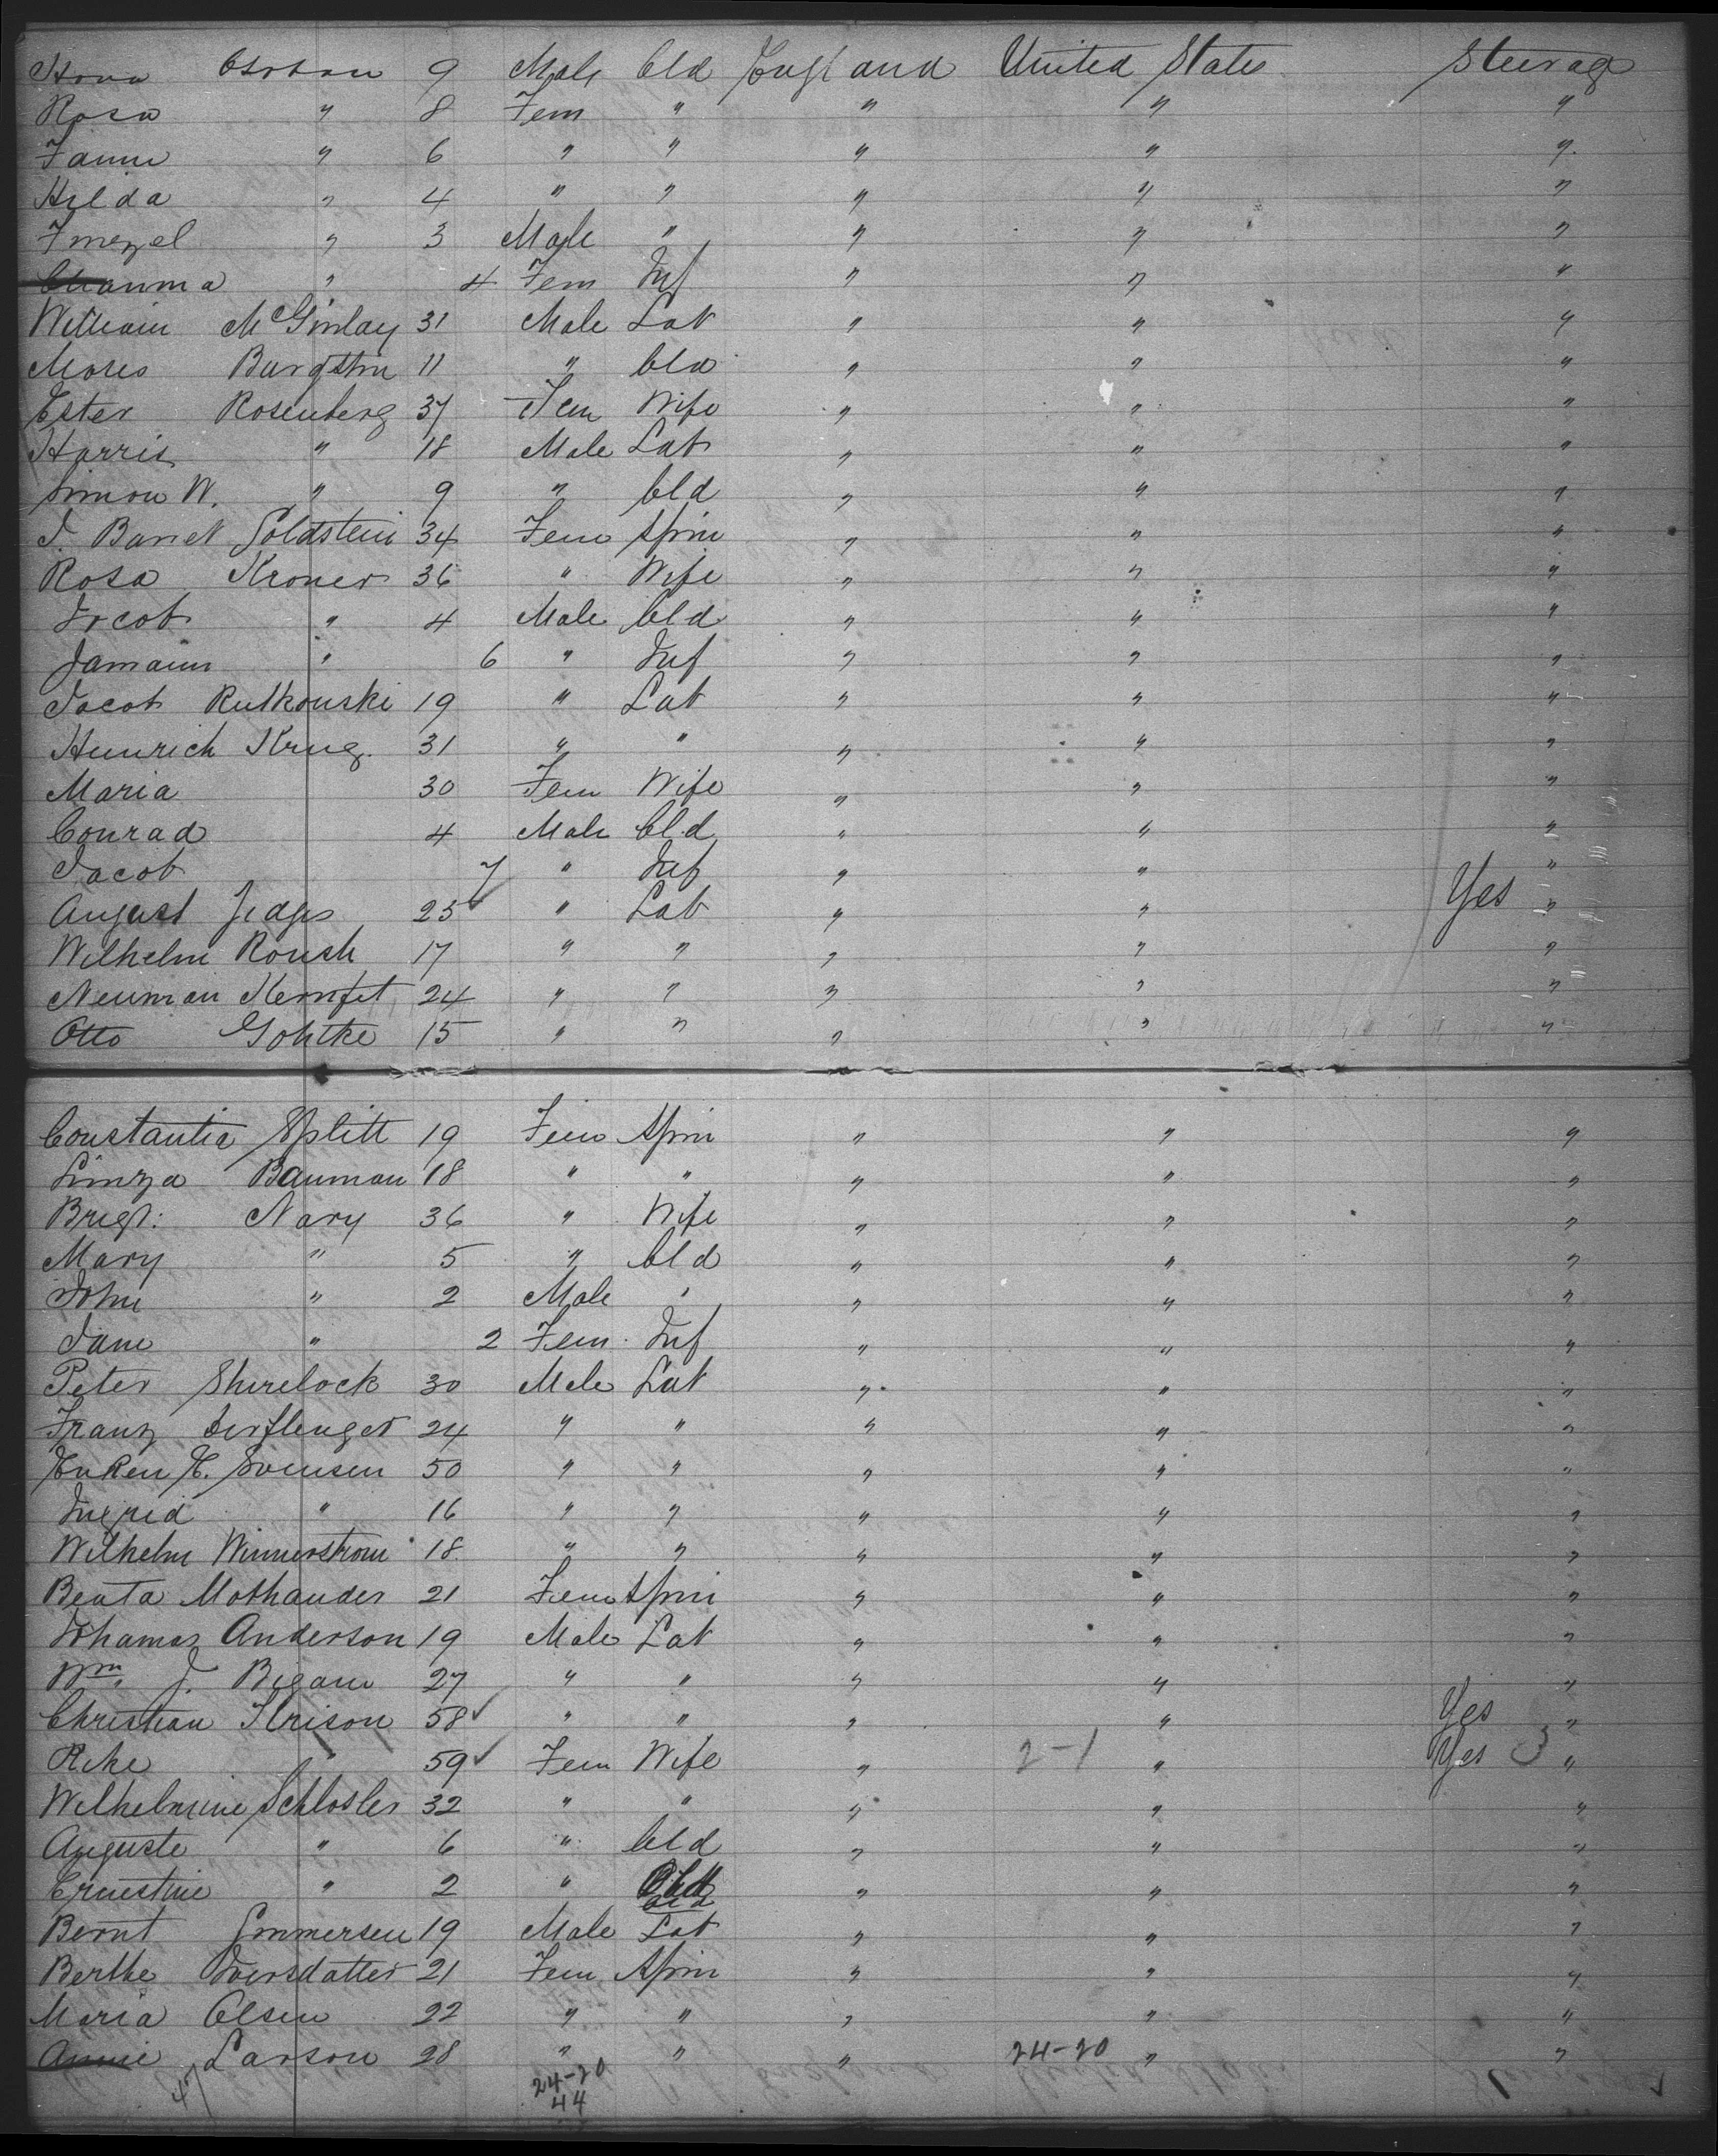 9 Male Cld England United States Steerage
Rosa " 8 Fem " " " "
" 6 " " " " "
Hilda " 4 " " " " "
" 3 Male " " " "
" 4 Fem Inf " " "
William McGinlay 31 Male Lab " " "
Moses 11 " Cld " " "
Ester Rosenberg 37 Fem Wife " " "
Harris " 18 Male Lab " " "
Simon W. " 9 " Cld " " "
Goldstein 34 Fem Spin " " "
Rosa Kroner 36 " Wife " " "
Jacob " 4 Male Cld " " "
" 6 " Inf " " "
Jacob Rutkouski 19 " Lab " " "
Heinrich Krug. 31 " " " " "
Maria 30 Fem Wife " " "
Conrad 4 Male Cld " " "
Jacob 7 " Inf " " "
August 25 ✓ " Lab " " Yes "
Wilhelm 17 " " " " "
Neuman 24 " " " " "
Otto Gohtke 15 " " " " "
Constantia Splitt 19 Fem Spin " " "
Bauman 18 " " " " "
Brigt: Nary 36 " Wife " " "
Mary " 5 " Cld " " "
John " 2 Male " " " "
Jane " 2 Fem Inf " " "
Peter Shirelock 30 Male Lab " " "
Franz 24 " " " " "
E. Svensen 50 " " " " "
Ingrid " 16 " " " " "
Wilhelm Winnerstrom 18 " " " " "
Beata Mothander 21 Fem Spin " " "
Anderson 19 Male Lab " " "
Wm. J. 27 " " " " "
Christian 58 ✓ " " " " Yes "
Rike " 59 ✓ Fem Wife " 2-1 " Yes 3 "
Wilhelmine Schlosler 32 " " " " "
Auguste " 6 " Cld " " "
Ernestine " 2 " Cld " " "
Bernt 19 Male Lab " " "
Berthe Iversdatter 21 Fem Spin " " "
Maria Olsen 22 " " " " "
Annie Larson 28 " " " 24-20 " "
47 24-20
44